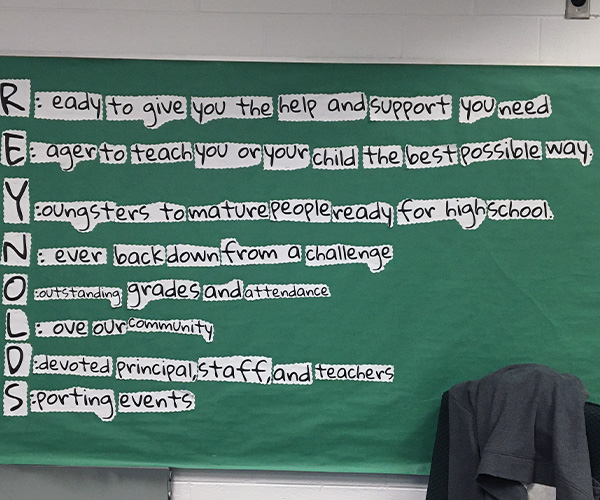 R: eady to give you the help and support you need
E: ager to teach you or your child the best possible way.
Y: oungsters to mature people ready for high school.
N: ever back down from a challenge
O: outstanding grades and attendance
L: ove our community
D: devoted principal, staff, and teachers
S: porting events